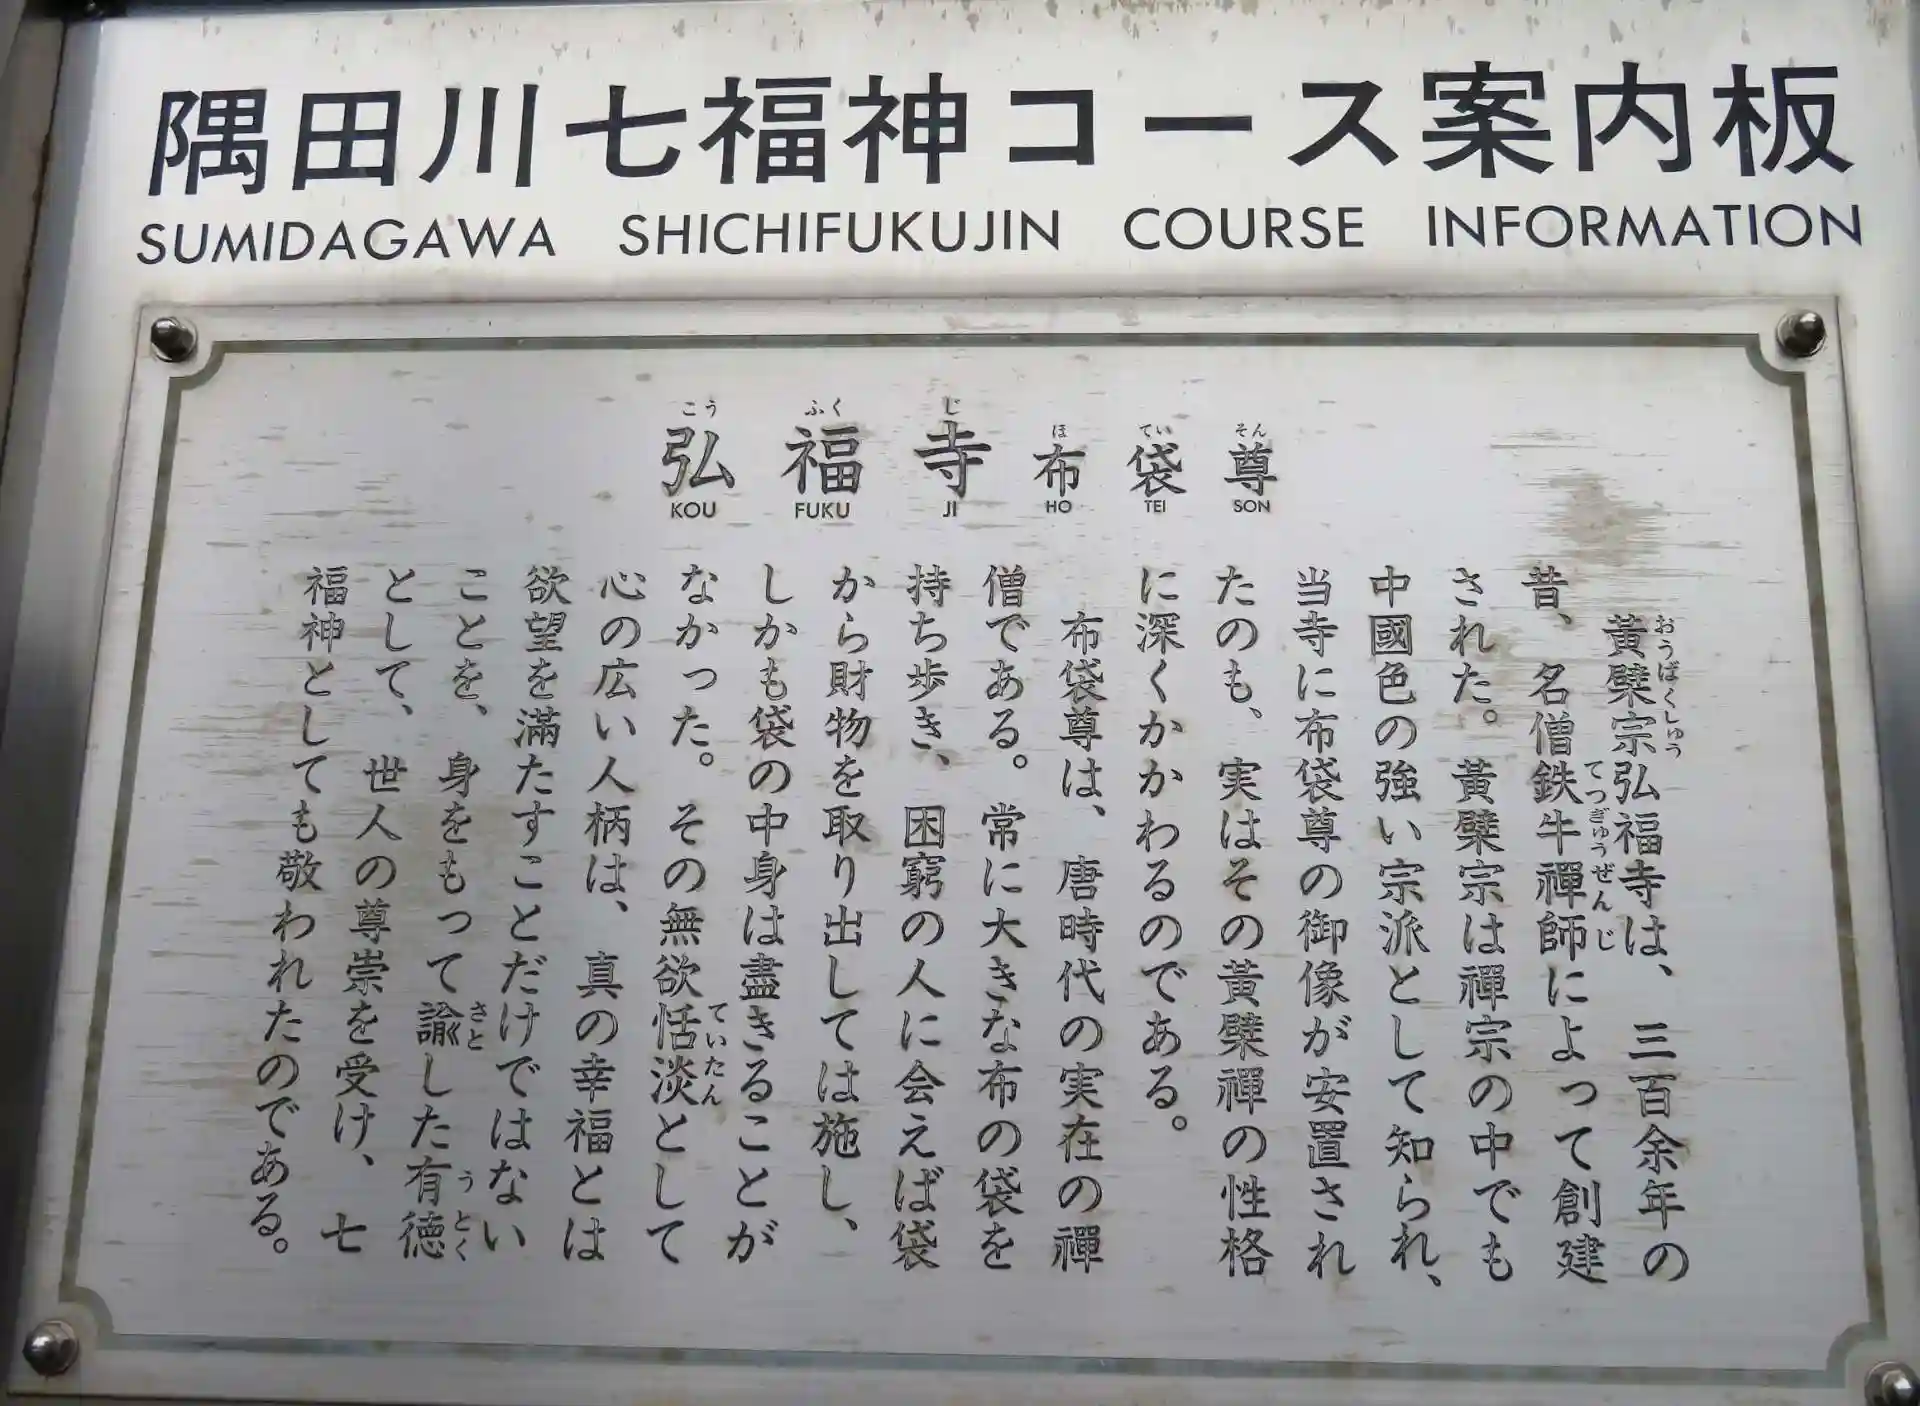 隅田川七福神コース案内板
SUMIDAGAWA SHICHIFUKUJIN COURSE INFORMATION
こう ふく じ ほ てい そん
弘福寺布袋尊
KOU FUKU JI HO TEI SON
おうばくしゅう
黃檗宗弘福寺は、三百余年の
てつぎゅうぜんじ
昔、名僧鉄牛禪師によって創建
された。黃檗宗は禪宗の中でも
中國色の強い宗派として知られ、
当寺に布袋尊の御像が安置され
たのも、実はその黃檗禪の性格
に深くかかわるのである。
布袋尊は、唐時代の実在の禪
僧である。常に大きな布の袋を
持ち歩き、困窮の人に会えば袋
から財物を取り出しては施し、
しかも袋の中身は盡きることが
ていたん
なかった。その無欲恬淡として
心の広い人柄は、真の幸福とは
欲望を滿たすことだけではない
さと うとく
ことを、身をもって諭した有徳
として、世人の尊崇を受け、七
福神としても敬われたのである。